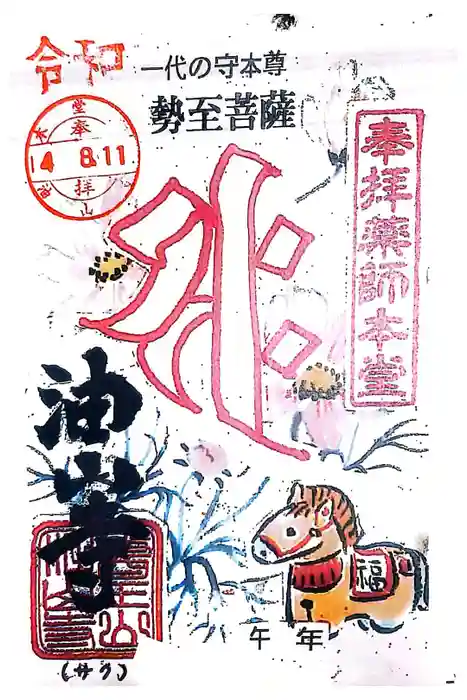 令和
一代の守本尊
勢至菩薩
奉拝薬師本堂
14 8.11
奉拝
油山寺
福
午年
(サク)